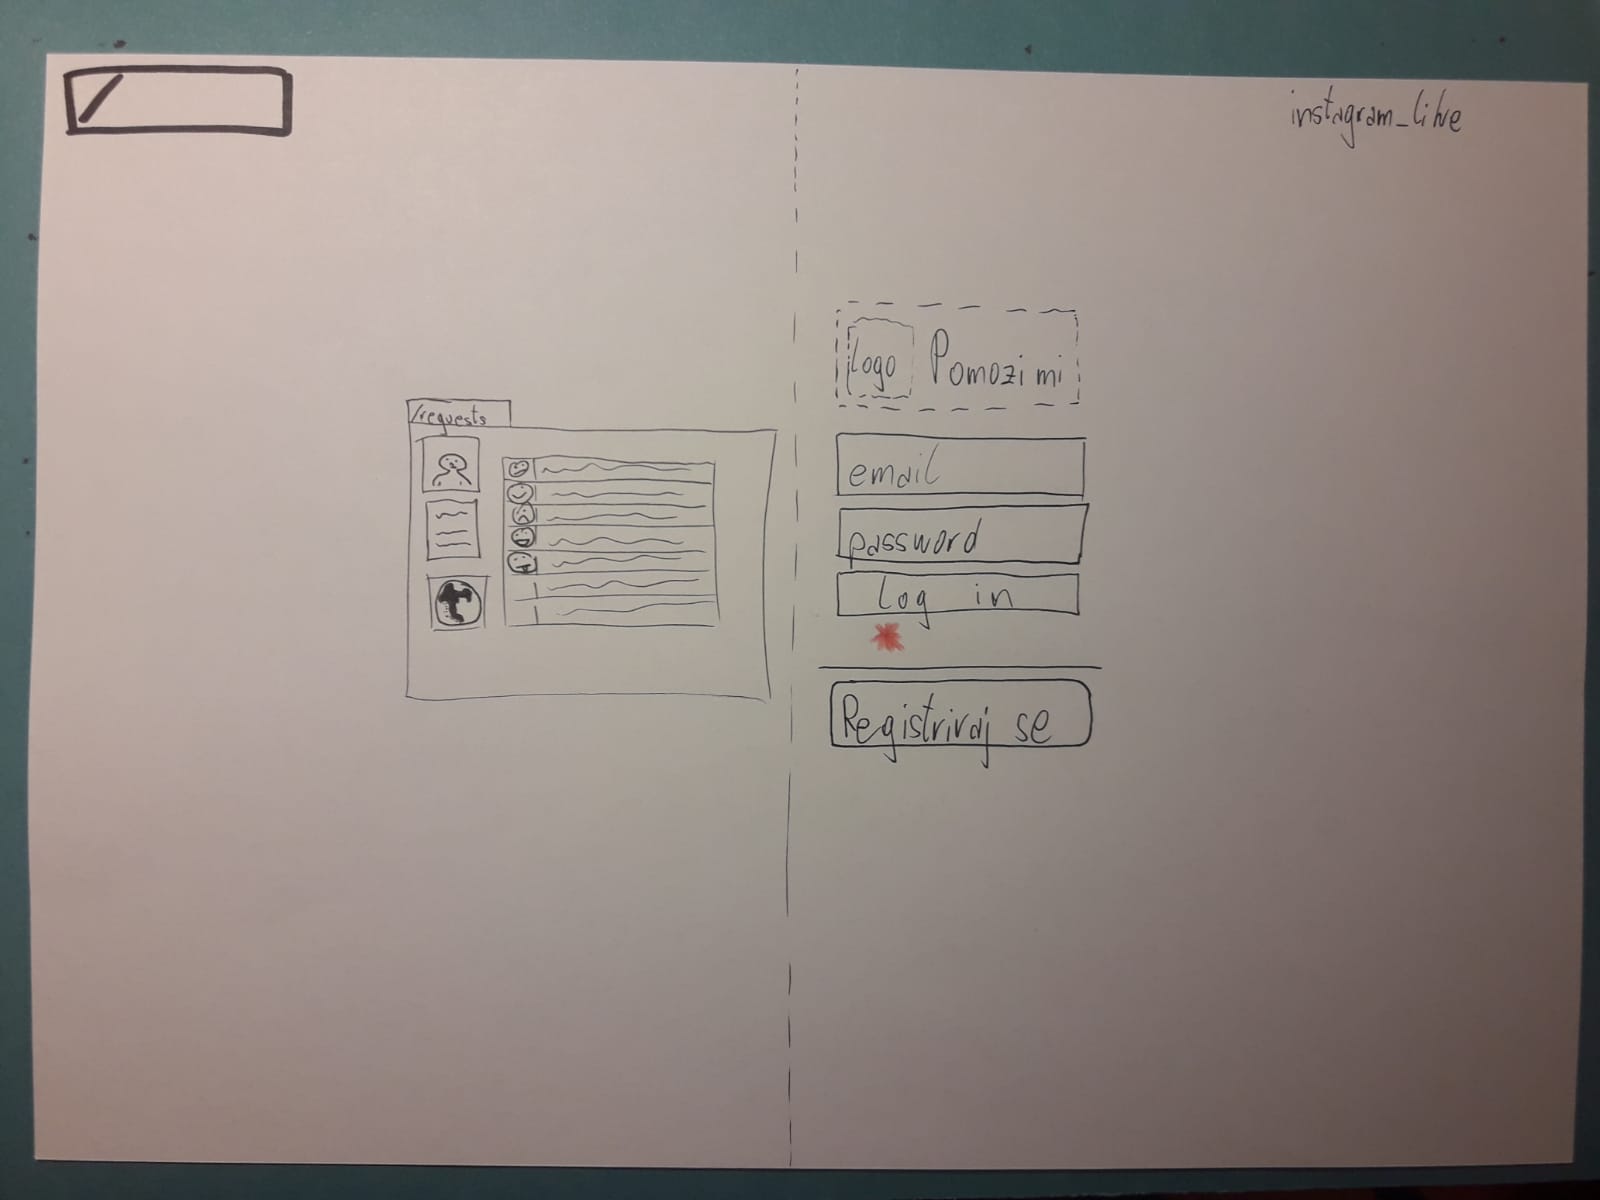 /
instagram_like
/requests
logo Pomozi mi
email
password
Log in
Registriraj se